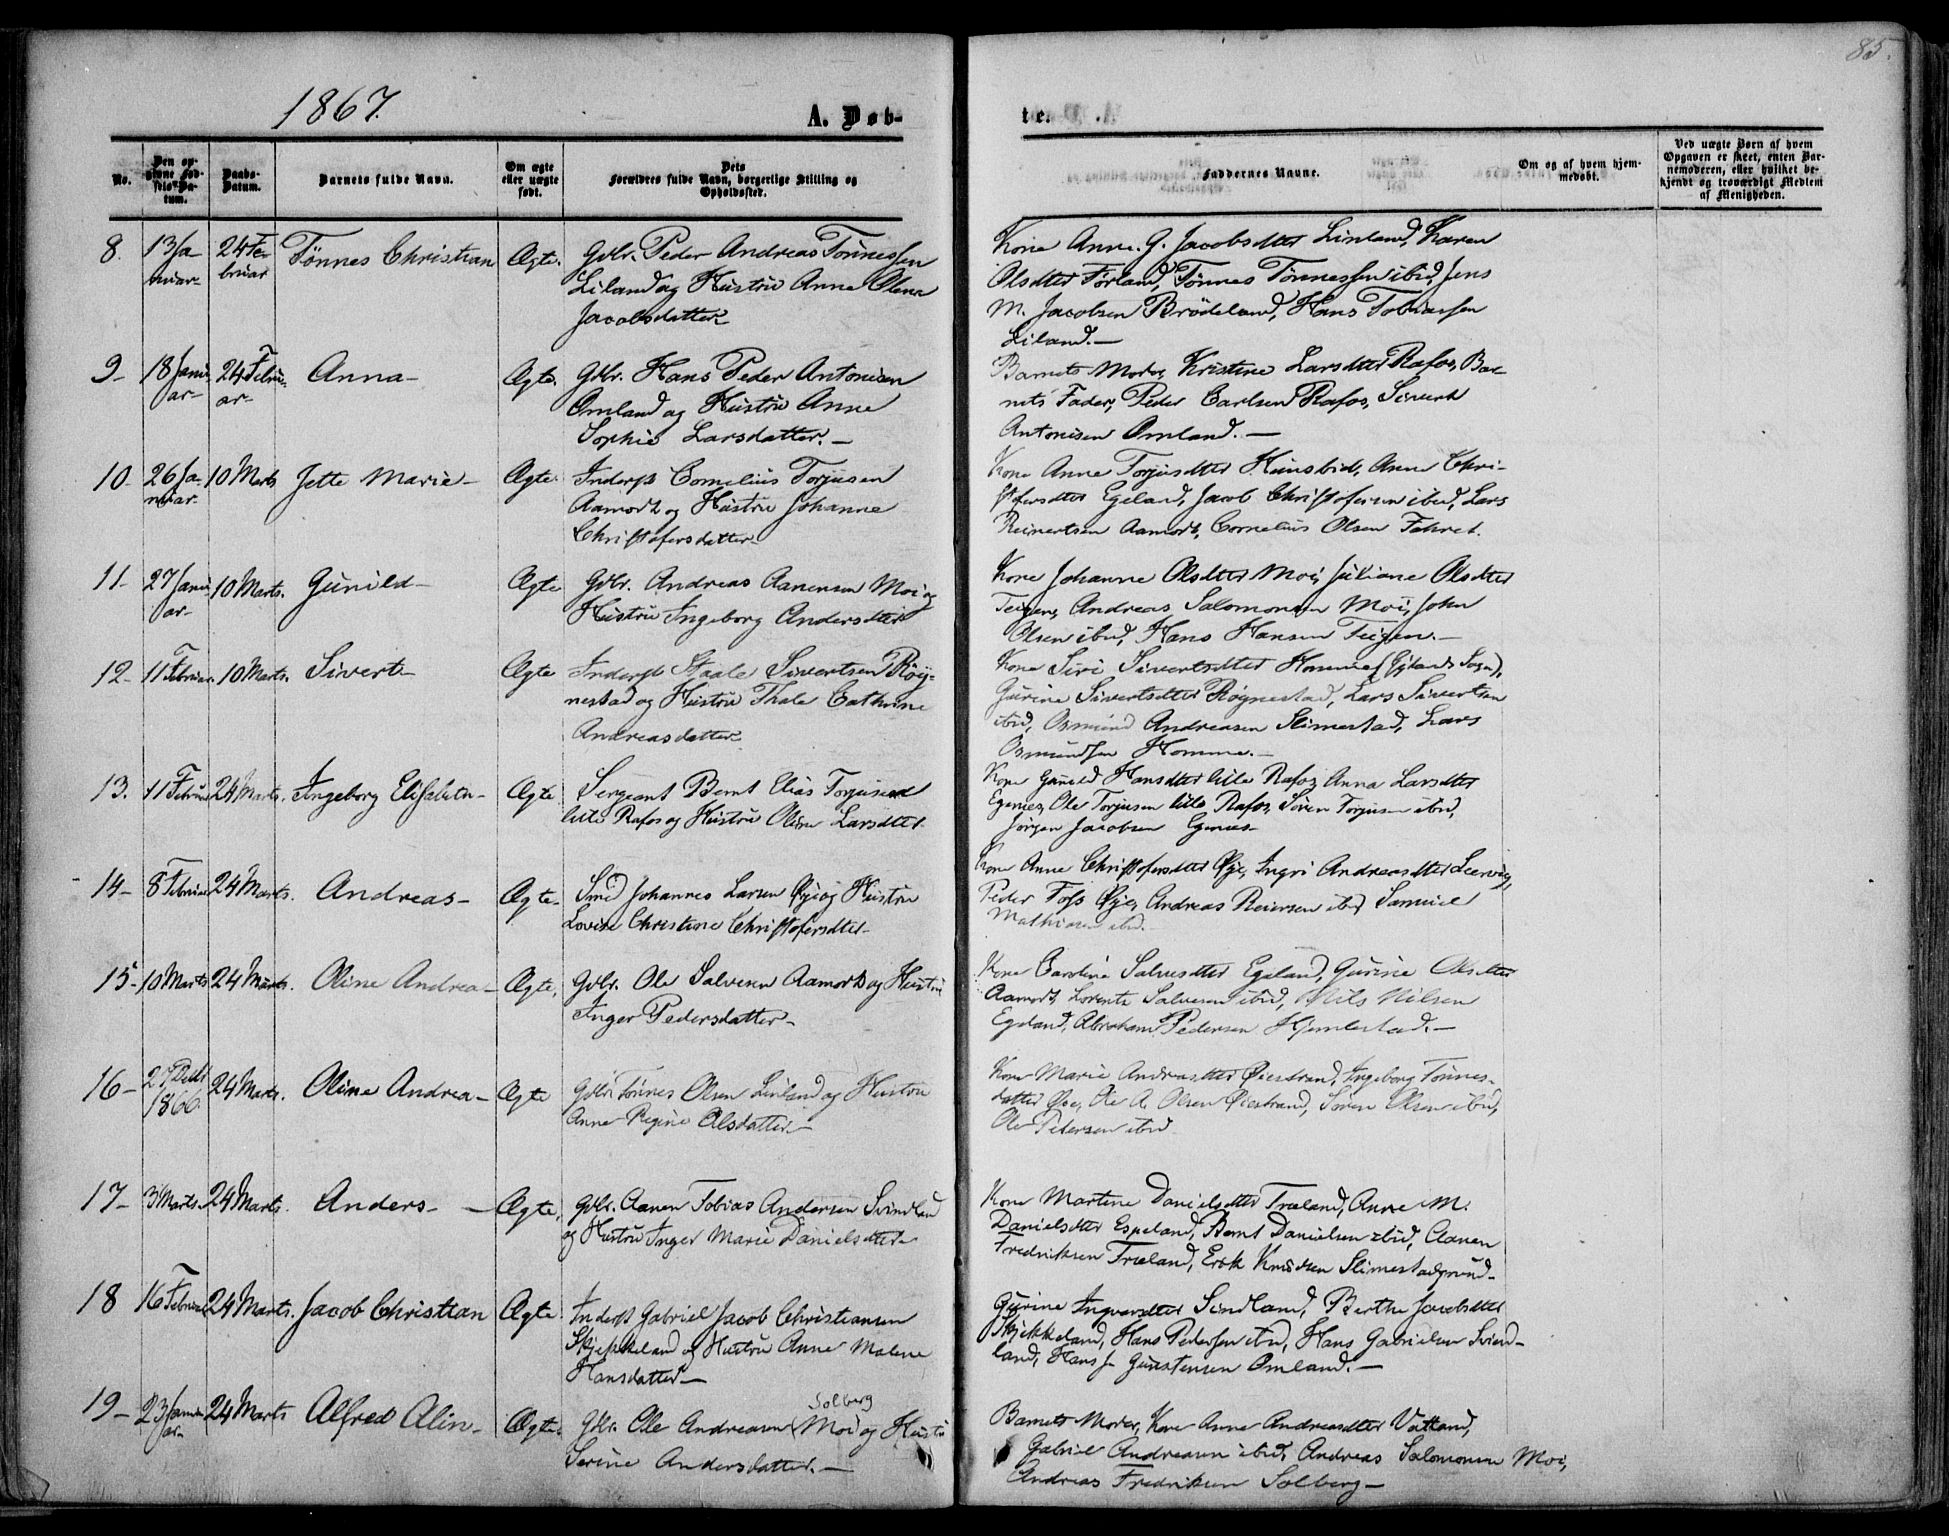 85.
1867.
A. Døb-
te.
No.
Den op-
givne Fød-
sels-Da-
tum.
Daabs-
Datum.
Barnets fulde Navn.
Om ægte
eller uægte
født.
Dets
Forældres fulde Navn, borgerlige Stilling og
Opholdssted.
Faddernes Navne.
Om og af hvem hjem-
medøbt.
Ved uægte Børn af hvem
Opgaven er skeet, enten Bar-
nemoderen, eller hvilket be-
kjendt og troværdigt Medlem
af Menigheden.
8. 13 Ja- 24 Fe- Tönnes Christian Ægte. Gdbr. Peder Andreas Tönnessen
nuar- bruar Liland og Hustru Anne Olena
Jacobsdatter
Kone Anne G. Jacobsdtter Linland, Karen
Olsdtter Förland, Tönnes Tönnessen ibid, Jens
M. Jacobsen Brödeland, Hans Tobiassen
Liland.-
9- 18 Janu- 24 Febru- Anna- Ægte. Gdbr. Hans Peder Antonisen
ar- ar- Omland og Hustru Anne
Sophie Larsdatter.-
Barnets Moder, Kristine Larsdtter Rafos, Bar-
nets Fader, Peder Carlsen Rafos, Sivert
Antonisen Omland.-
10- 26 Ja- 10 Marts Jette Marie- Ægte. Inderst Cornelius Torjusen
nuar- Aamodt og Hustru Johanne
Christofersdatter-
Kone Anne Torjusdtter Hunsbid, Anne Chri-
stofersdtter Egeland, Jacob Christofersen ibid, Lars
Reinertsen Aamodt, Cornelius Olsen
11- 27 Janu- 10 Marts. Gunild- Ægte Gdbr. Andreas Aanensen Moi og
ar- Hustru Ingeborg Andersdtter
Kone Johanne Olsdtter Moi, Juliane Olsdtter
Teigen, Andreas Salomonsen Moi, John
Olsen ibid, Hans Hansen Teigen.-
12- 11 Februar. 10 Marts. Sivert- Ægte Inderst Staale Sivertsen Röy-
nestad og Hustru Thale Cathrine
Andreasdatter
Kone Siri Sivertsdtter Homme (Gylands Sogn),
Gurine Sivertsdtter Röynestad, Lars Sivertsen
ibid, Osmund Andreasen Slimestad, Lars
Osmundsen Homme.-
13. 11 Februar 24 Marts. Ingeborg Elisabeth- Ægte Sergeant Bernt Elias Torjusen
lille Rafos og Hustru Oline Larsdtter
Kone Gunild Hansdtter lille Rafos, Anna Larsdtter
Egenes, Ole Torjusen lille Rafos, Sören Torjusen ibid,
Jörgen Jacobsen Egenes-
14- 8 Februar 24 Marts. Andreas- Ægte- Smed Johannes Larsen Öye og Hustru
Lovise Christine Christofersdtter-
Kone Anne Christofersdtter Öye, Ingri Andreasdtter Leervig,
Peder Foss Öye, Andreas Reiersen ibid Samuel
Mathiasen ibid.
15- 10 Marts 24 Marts. Oline Andrea- Ægte. Gdbr. Ole Salvesen Aamodt og Hustru
Inger Pedersdatter-
Kone Caroline Salvesdtter Egeland, Gurine Olsdtter
Aamodt, Lorents Salvesen ibid, Nils Nilsen
Egeland, Abraham Pedersen Hjemlestad.-
16- 27 Decbr 24 Marts. Oline Andrea- Ægte Gdbr Tönnes Olsen Linland og Hustru
1866. Anne Regine Olsdatter.-
Kone Marie Andreasdtter Öiestrand, Ingeborg Tönnes-
datter Öye, Ole A. Olsen Öiestrand, Sören Olsen ibid,
Ole Pedersen ibid
17- 3 Marts. 24 Marts. Anders- Ægte, Gdbr. Aanen Tobias Andersen Svindland
og Hustru Inger Marie Danielsdtter-
Kone Martine Danielsdtter Træland, Anne M.
Danielsdtter Espeland, Bernt Danielsen ibid, Aanen
Fredriksen Træland, Erik Knudsen Slimestadgrund-
18 16 Februar 24 Marts. Jacob Christian Ægte. Inderst Gabriel Jacob Christiansen
Skjekkeland og Hustru Anne Malene
Hansdatter-
Gurine Ingvardtter Sindland, Berthe Jacobsdtter
Skjekkeland, Hans Pedersen ibid, Hans Gabrielsen Svind-
land, Hans J. Gunstensen Omland.-
19- 23 Janu- 24 Marts Alfred Alin- Ægte. Gdbr. Ole Andreasen Moi og Hustru
Solberg
ar- Serine Andersdatter.-
Barnets Moder, Kone Anne Andreasdtter Vatland,
Gabriel Andreasen ibid, Andreas Salomonsen Moi,
Andreas Fredriksen Solberg-